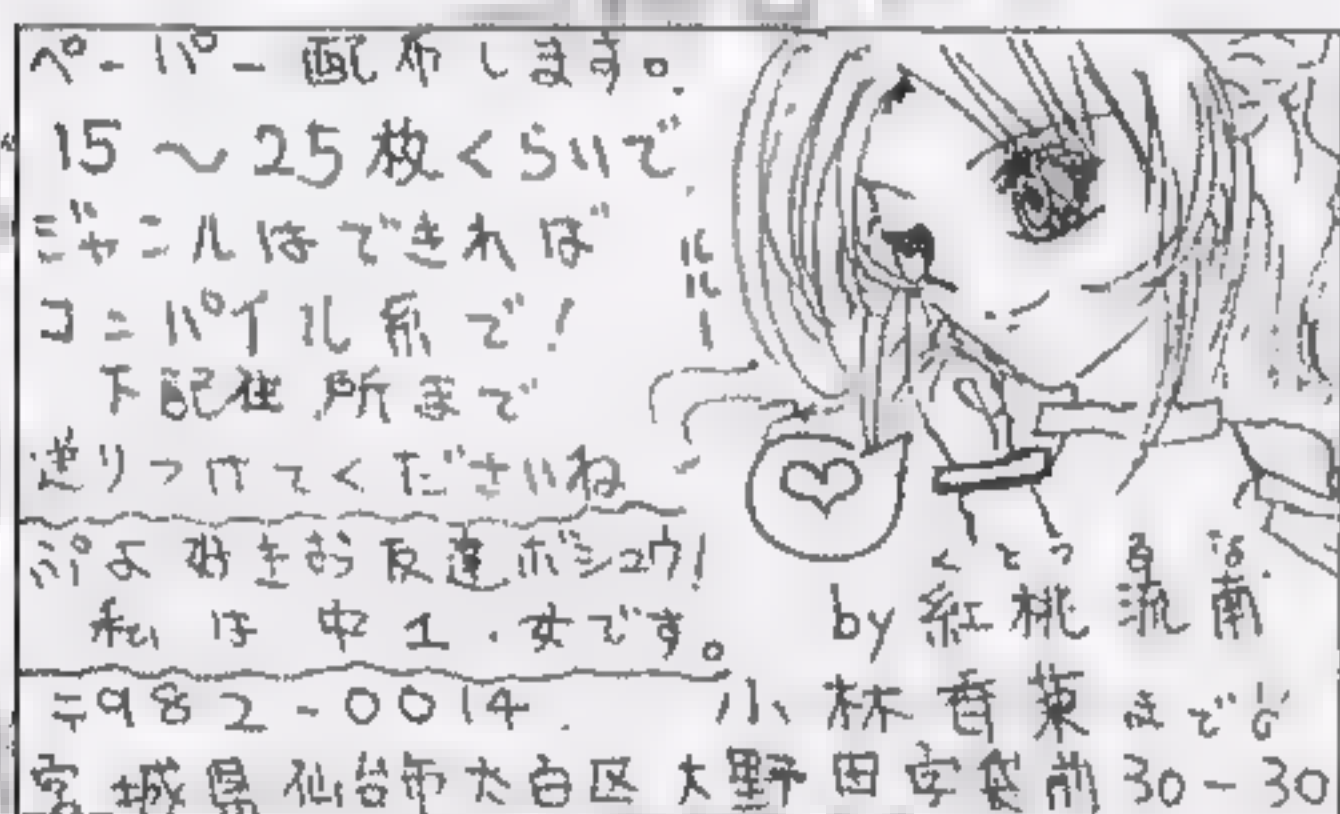 ペーパー配布します。
15〜25枚くらいで
ジャンルはできれば
コンパイル系で!
下記住所まで
送りつけてくださいね
ルルー
ぷよ好きお友達ボシュウ!
私は中1・女です。
るな
by 紅桃流南
〒982-0014
小林香菜まで
宮城県仙台市太白区大野田字袋前30-30